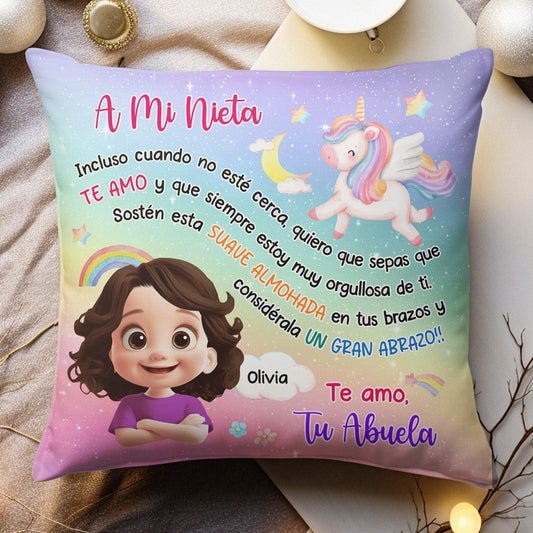 A Mi Nieta
Incluso cuando no esté cerca, quiero que sepas que
TE AMO y que siempre estoy muy orgullosa de ti.
Sostén esta SUAVE ALMOHADA en tus brazos y
considérala UN GRAN ABRAZO!!
Olivia
Te amo,
Tu Abuela